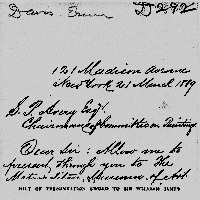 Davis, Erwin D292
121 Madison Avenue
New York 21 March 1889
S. P. Avery Esqr
Chairman of Committee on Painting
Dear Sir: Allow me to
present, through you to The
Metropolitan Museum of Art
HILT OF PRESENTATION SWORD TO SIR WILLIAM JAMES